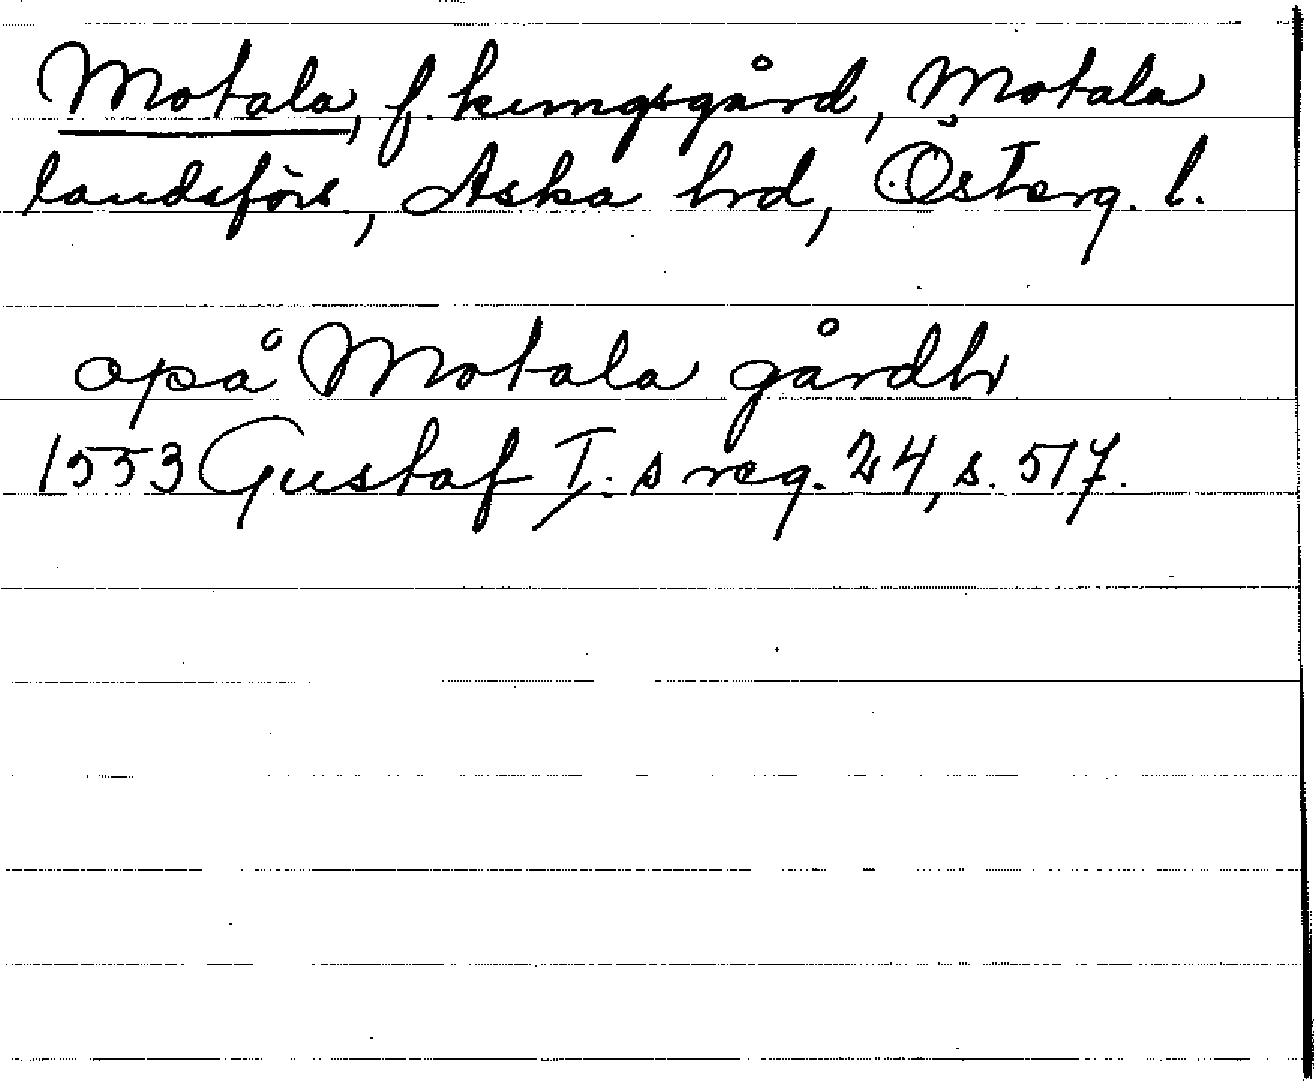 Motala, f. kungsgård, Motala
landsförs, Aska hrd, Österg. l.
opå Motala gårdh
1553 Gustaf I:s reg. 24, s. 517.